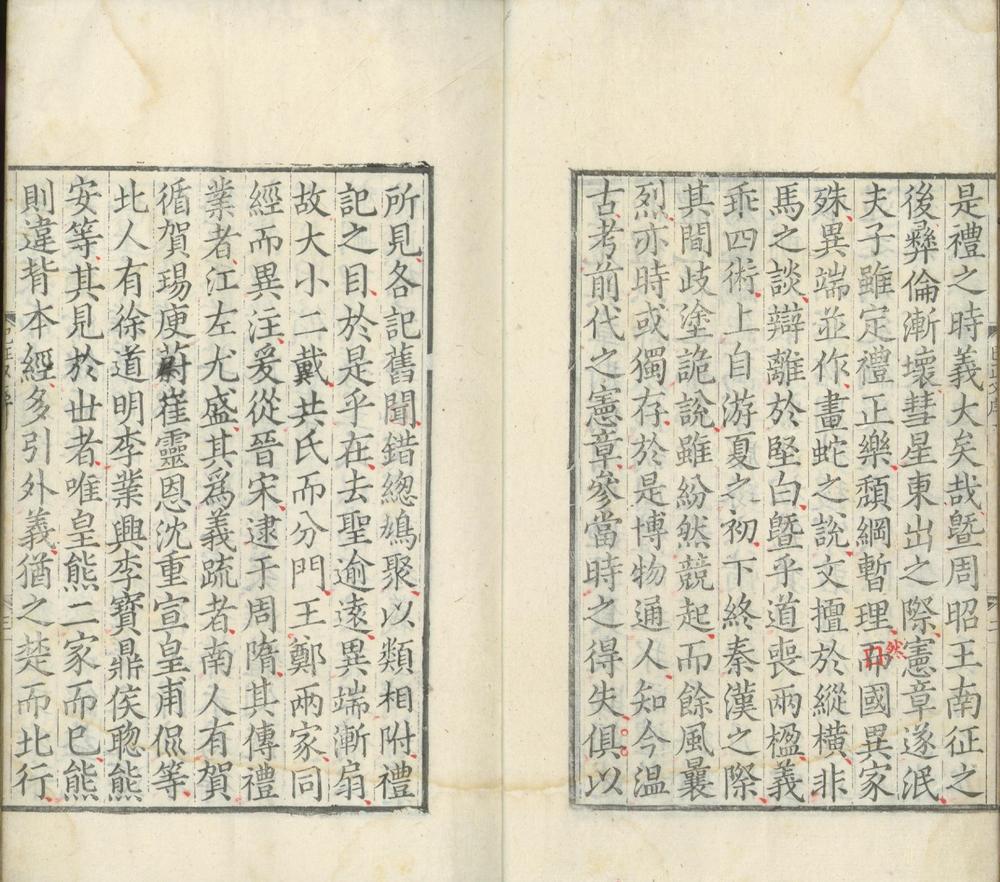 是禮之時義大矣哉曁周昭王南征之
後彝倫漸壞彗星東出之際憲章遂泯
夫子雖定禮正樂頽綱暫理而國異家
然
殊異端並作畫蛇之說文擅於縱橫非
馬之談辯離於堅白曁乎道喪兩楹義
乖四術上自游夏之初下終秦漢之際
其間歧塗詭說雖紛然競起而餘風曩
烈亦時或獨存於是博物通人知今温
古考前代之憲章參當時之得失俱以
所見各記舊聞錯緫鳩聚以類相附禮
記之目於是乎在去聖逾逺異端漸扇
故大小二戴共氏而分門王鄭兩家同
經而異注爰從晉宋逮于周隋其傳禮
業者江左尤盛其爲義疏者南人有賀
循賀瑒庾蔚崔靈恩沈重宣皇甫侃等
北人有徐道明李業興李寶鼎侯聦熊
安等其見於世者唯皇熊二家而已熊
則違背本經多引外義猶之楚而北行